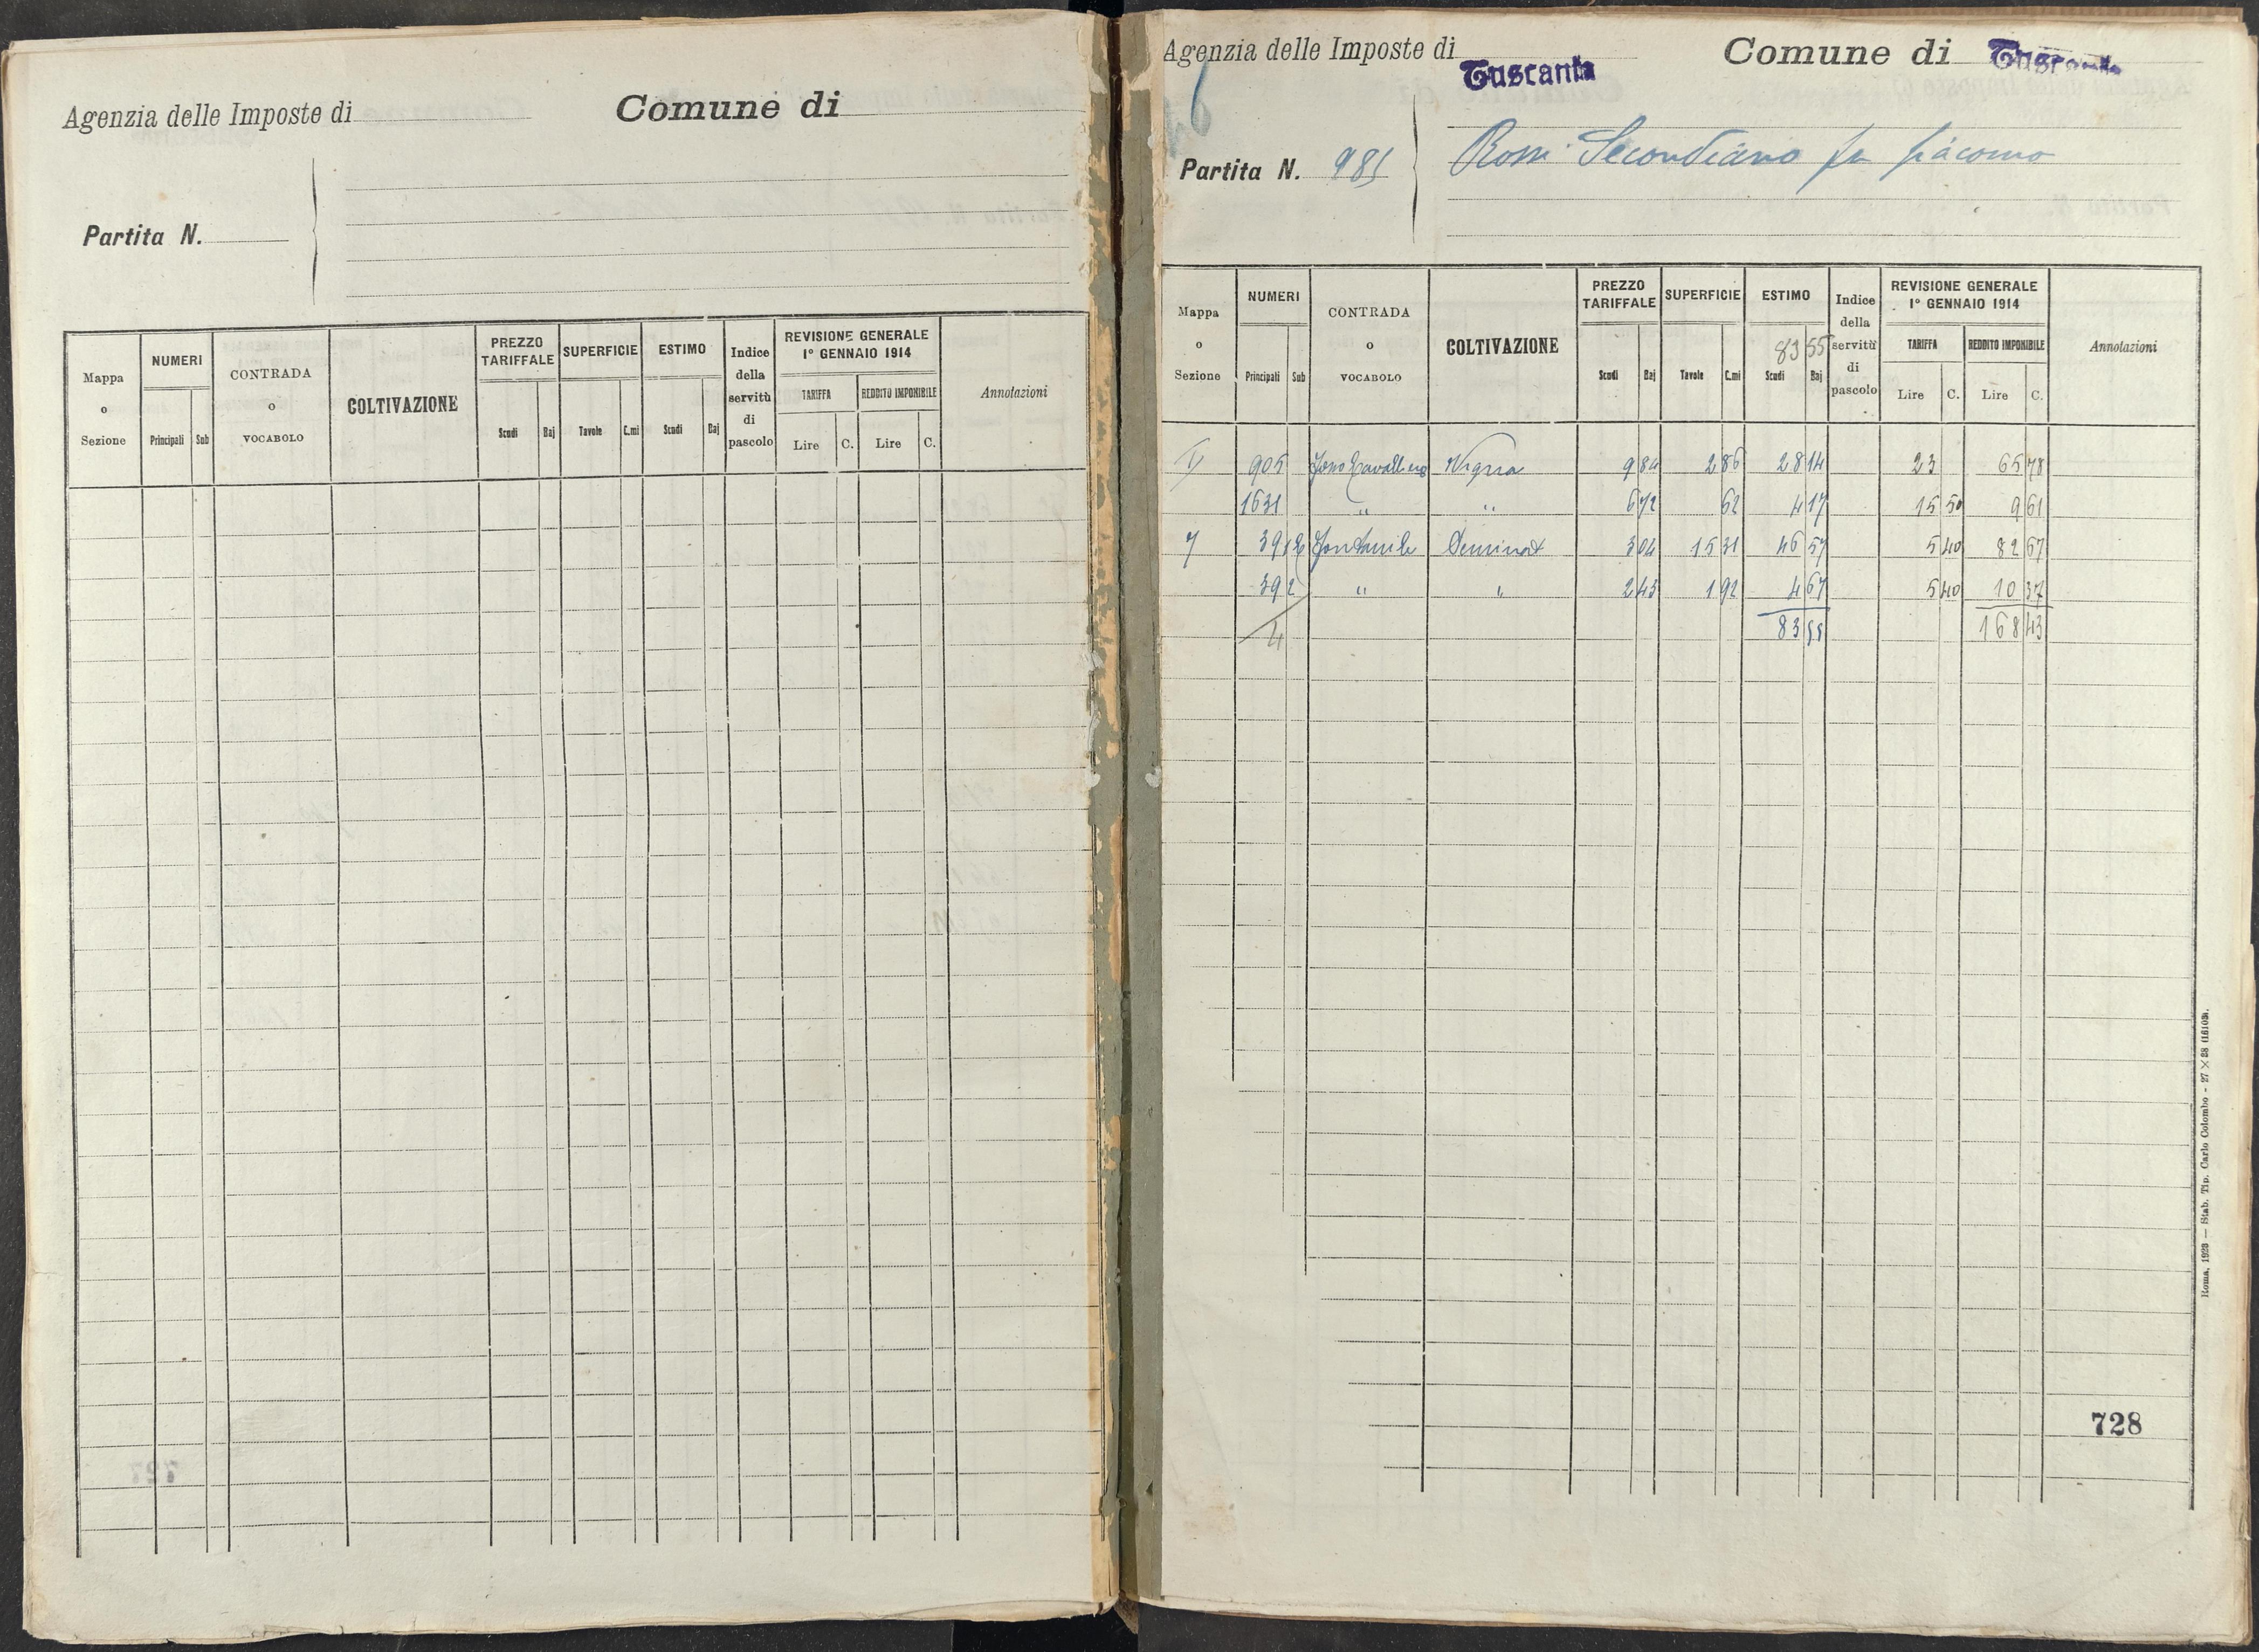 Agenzia delle Imposte di
Comune di
Partita N.
Mappa o Sezione
NUMERI
Principali Sub
CONTRADA o VOCABOLO
COLTIVAZIONE
PREZZO TARIFFALE
Scudi Baj
SUPERFICIE
Tavole C.mi
ESTIMO
Scudi Baj
Indice della servitù di pascolo
REVISIONE GENERALE
1° GENNAIO 1914
TARIFFA
Lire C.
REDDITO IMPONIBILE
Lire C.
Annotazioni
Agenzia delle Imposte di Tuscania
Comune di Tuscania
Partita N. 985
Rossi Secondiano fu Giacomo
Mappa o Sezione
NUMERI
Principali Sub
CONTRADA o VOCABOLO
COLTIVAZIONE
PREZZO TARIFFALE
Scudi Baj
SUPERFICIE
Tavole C.mi
ESTIMO
83 55
Scudi Baj
Indice della servitù di pascolo
REVISIONE GENERALE
1° GENNAIO 1914
TARIFFA
Lire C.
REDDITO IMPONIBILE
Lire C.
Annotazioni
905 Vigna 9 84 2 86 28 14 23 65 78
1631 " " 6 72 62 4 17 15 50 9 61
391 Fontanile Seminat 3 04 15 31 46 57 5 40 82 67
392 " " 2 43 1 92 4 67 5 40 10 37
4 83 55 168 43
728
Roma, 1928 — Stab. Tip. Carlo Colombo - 27 × 38 (16103).